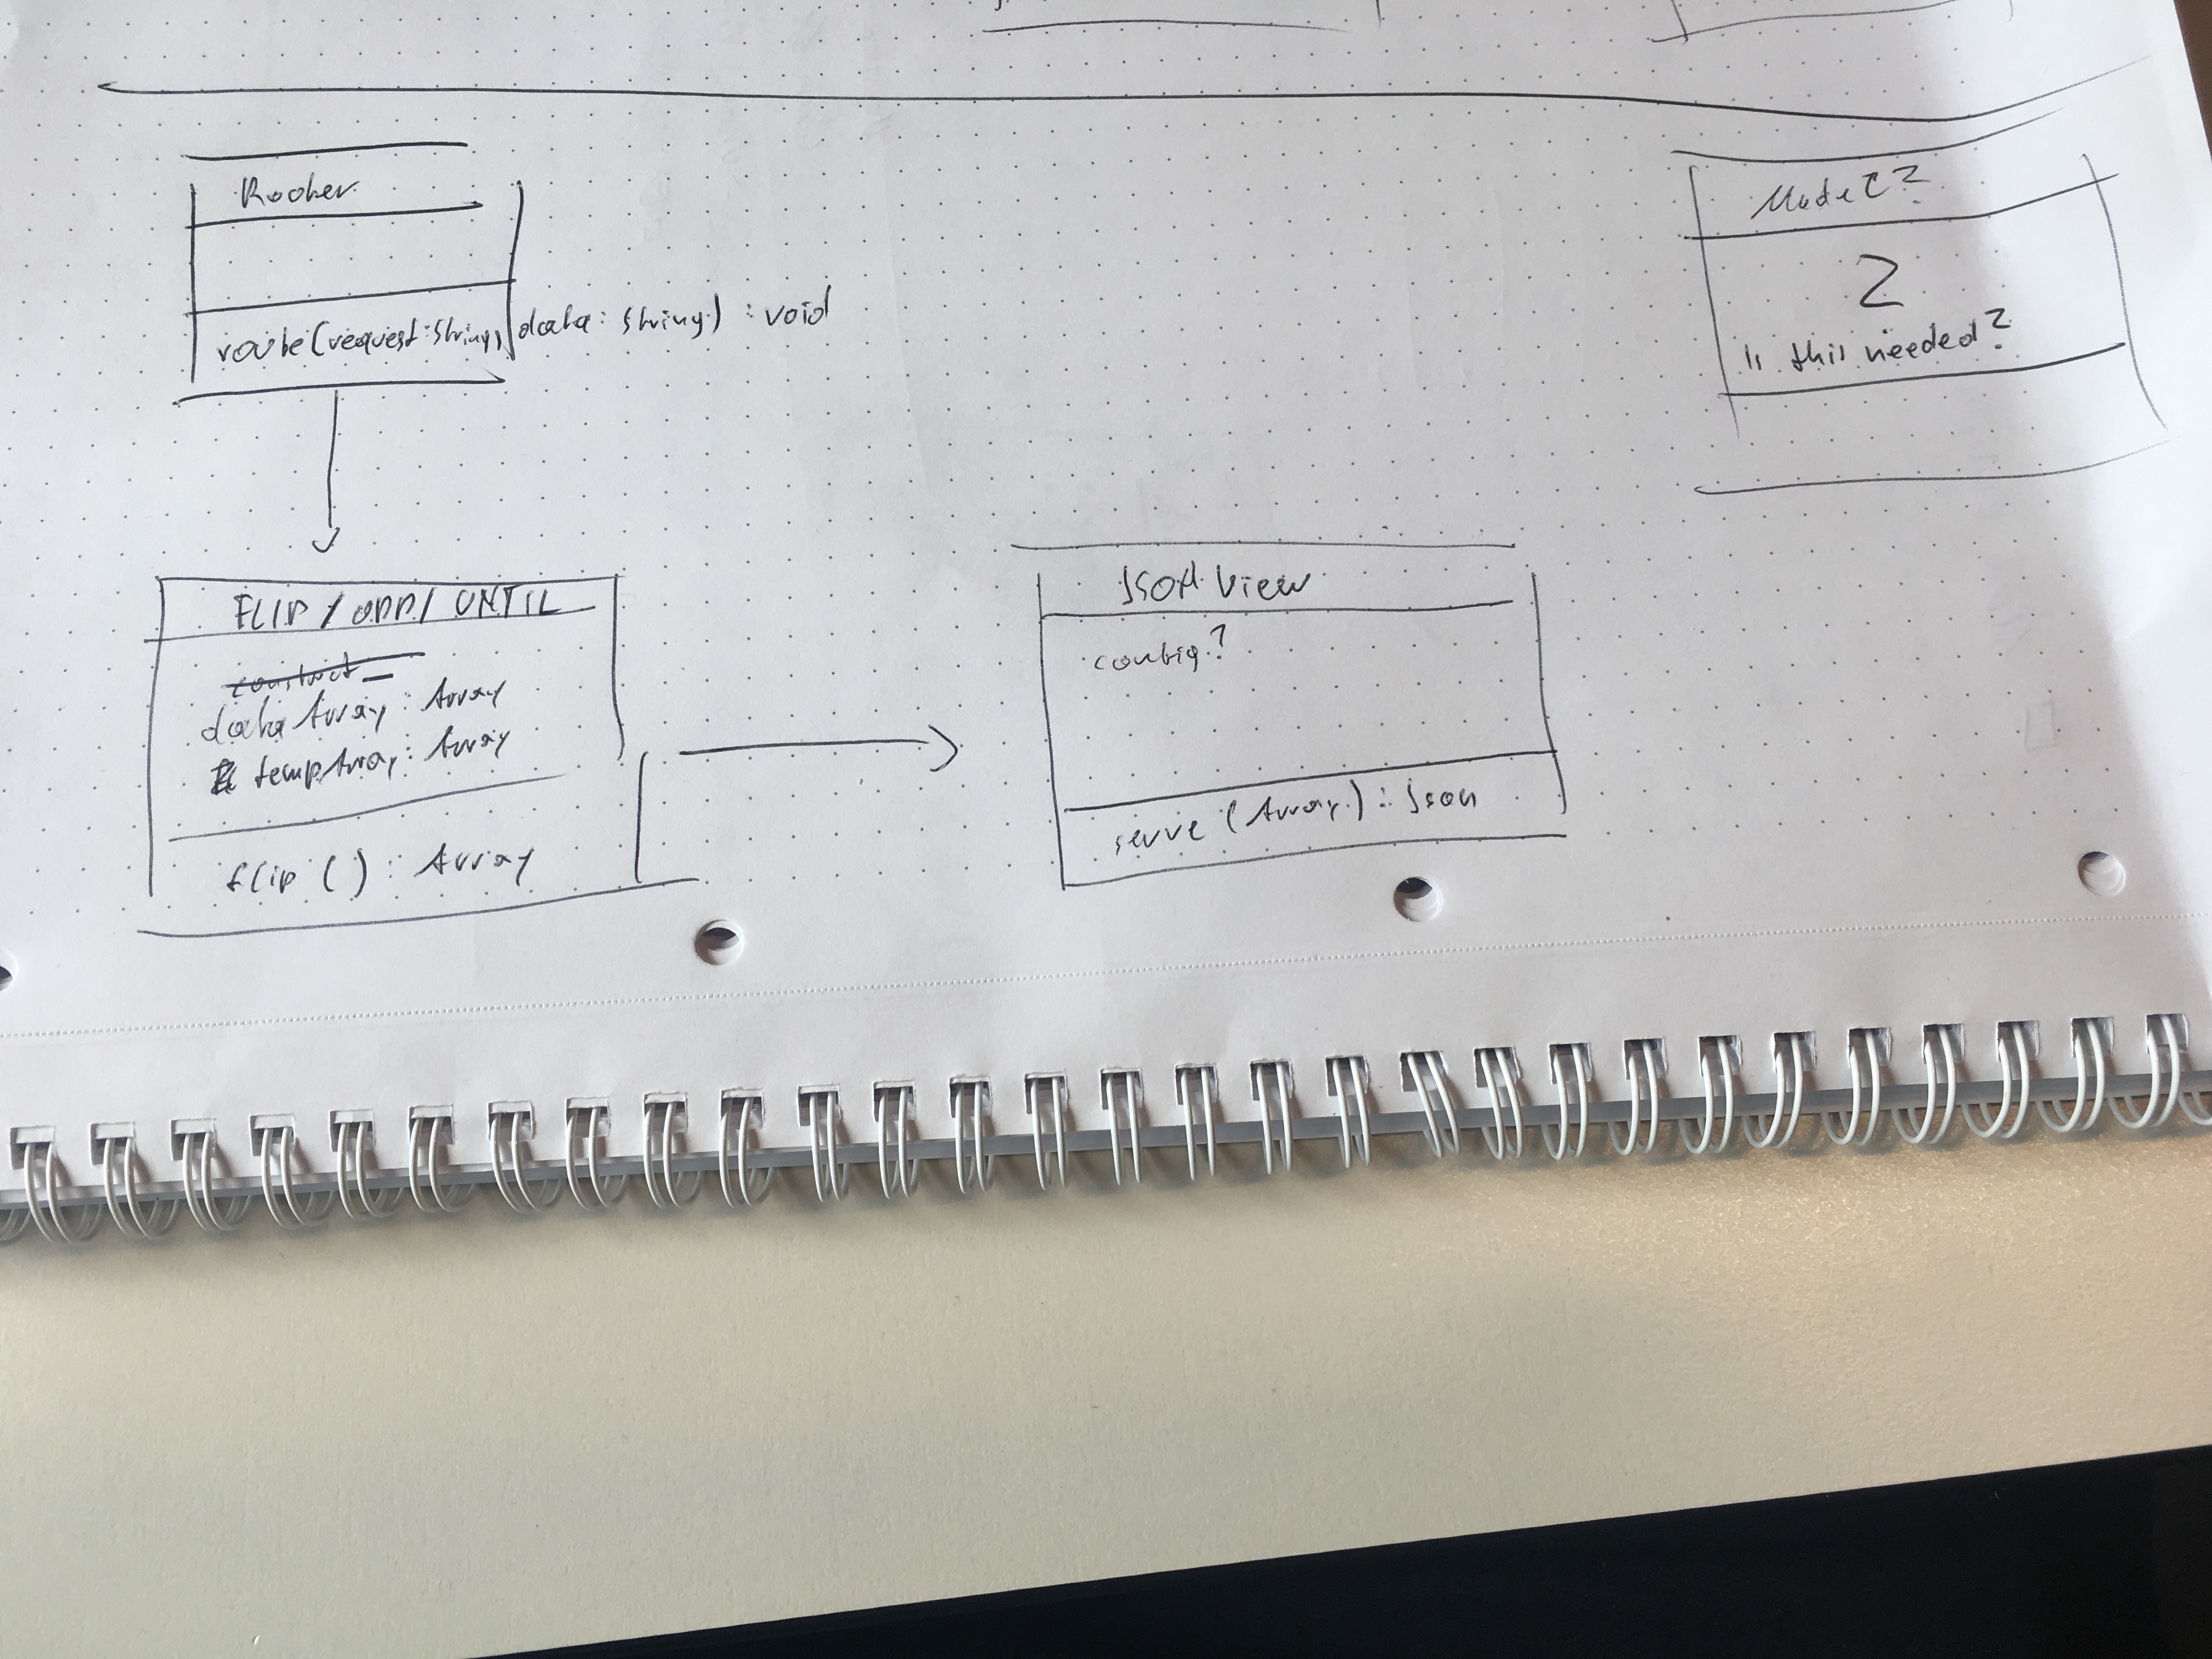 Router
route(request: String, data: String) : void
Model?
?
Is this needed?
FLIP / ODD / UNTIL
construct
dataArray : Array
tempArray : Array
flip ( ) : Array
JSON View
config?
serve (Array) : Json